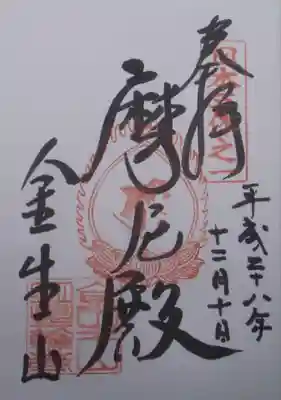 奉拝
平成二十八年
十二月十日
摩尼殿
金生山